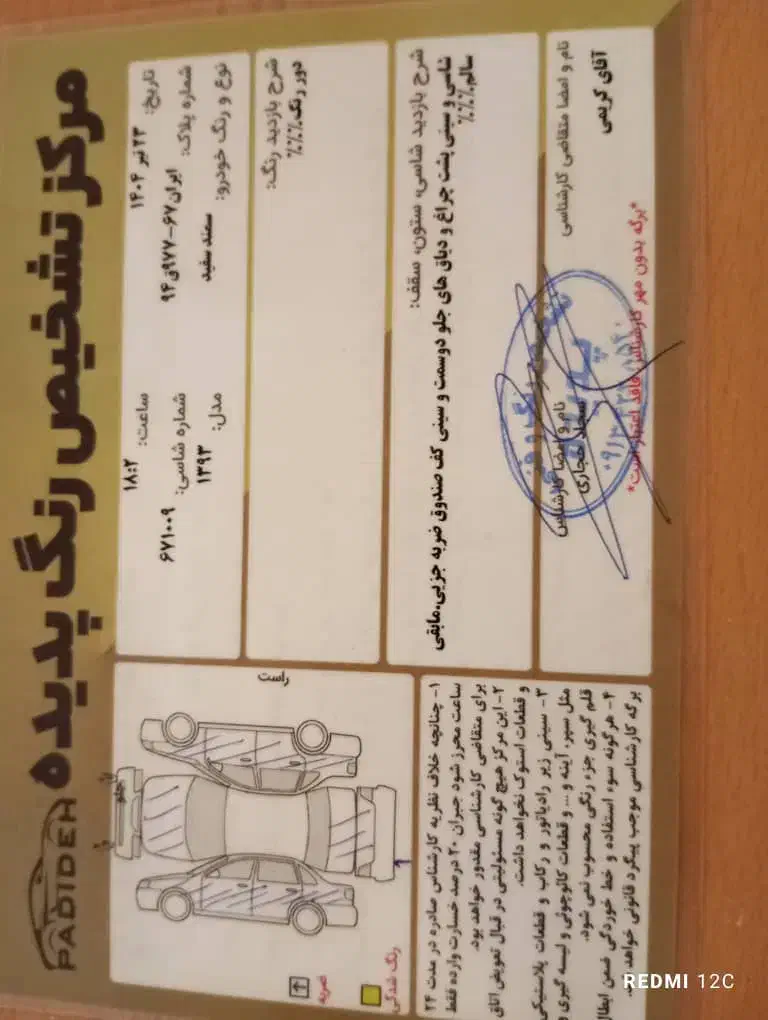 مرکز تشخیص رنگ پدیده
PADIDEH
تاریخ: ۲۳ تیر ۱۴۰۴
ساعت: ۱۸:۲
شماره پلاک: ایران ۶۷-۹۷۷ق۹۴
شماره شاسی: ۶۷۱۰۰۹
نوع و رنگ خودرو: سمند سفید
مدل: ۱۳۹۳
شرح بازدید رنگ:
دور رنگ٪٪٪
شرح بازدید شاسی، ستون، سقف:
شاسی و سینی پشت چراغ و دیاق های جلو دوسمت و سینی کف صندوق ضربه جزیی.مابقی
سالم٪٪٪
نام و امضا متقاضی کارشناسی
آقای کریمی
نام و امضا کارشناس
سجاد حجاری
*برگه بدون مهر کارشناس فاقد اعتبار است*
راست
جلو
ضربه
رنگ شدگی
۱- چنانچه خلاف نظریه کارشناس صادره در مدت ۲۴
ساعت محرز شود جبران ۲۰ درصد خسارت وارده فقط
برای متقاضی کارشناسی مقدور خواهد بود.
۲- این مرکز هیچ گونه مسئولیتی در قبال تعویض اتاق
و قطعات استوک نخواهد داشت.
۳- سینی زیر رادیاتور و رکاب و قطعات پلاستیکی
مثل سپر، آینه و ... و قطعات کائوچوئی و لیسه گیری و
قلم گیری جزء رنگی محسوب نمی شود.
۴- هرگونه سوء استفاده و خط خوردگی ضمن ابطال
برگه کارشناسی موجب پیگرد قانونی خواهد شد.
REDMI 12C